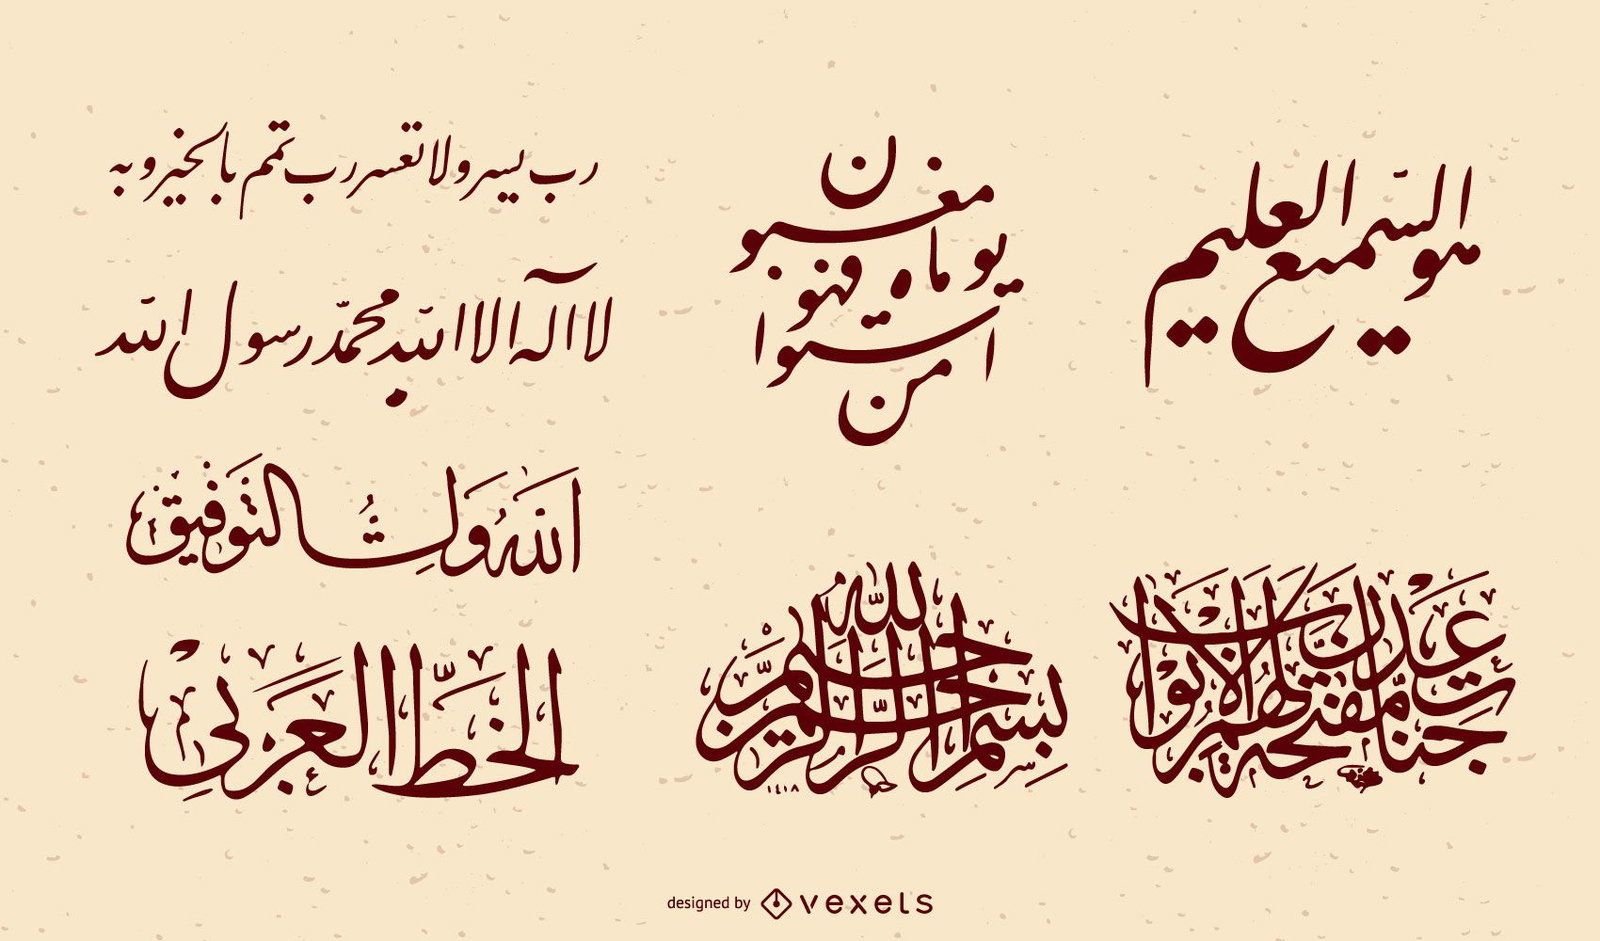 هو السميع العليم
من استوا
يوماه فهو
مغبون
رب يسر ولا تعسر رب تمم بالخير وبه
لا اله الا الله محمد رسول الله
الله ولي التوفيق
الخط العربي
جنات عدن مفتحة لهم الابواب
بسم الله الرحمن الرحيم
١٤١٨
designed by vexels